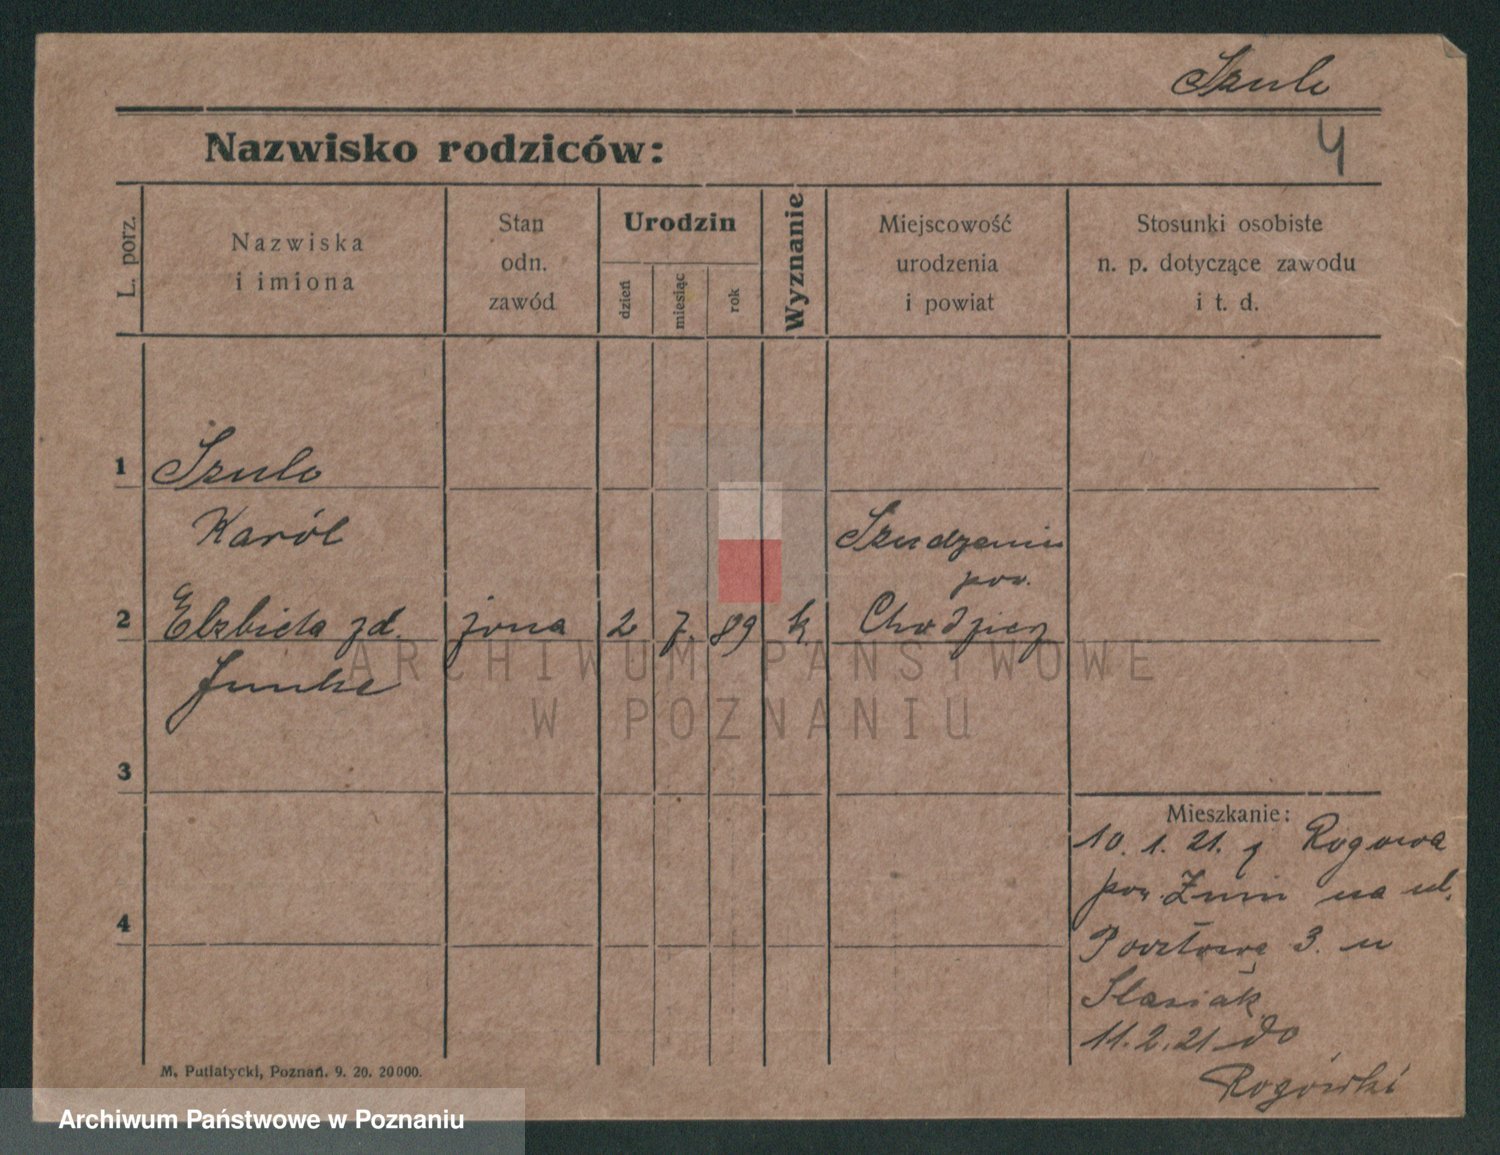 Szulc
4
Nazwisko rodziców:
L. porz.
Nazwiska
i imiona
Stan
odn.
zawód
Urodzin
dzień
miesiąc
rok
Wyznanie
Miejscowość
urodzenia
i powiat
Stosunki osobiste
n. p. dotyczące zawodu
i t. d.
1 Szulc
Karól
2 Elzbieta zd. żona 2 7. 89 k.
Junke
pow.
Chodzież
3
4
Mieszkanie:
10. 1. 21. z Rogowa
pow. Żnin na ul.
Pocztową 3. u
Stasiak
11. 2. 21 do
Rogówki
M. Putiatycki, Poznań. 9. 20. 20000.
ARCHIWUM PAŃSTWOWE
W POZNANIU
Archiwum Państwowe w Poznaniu